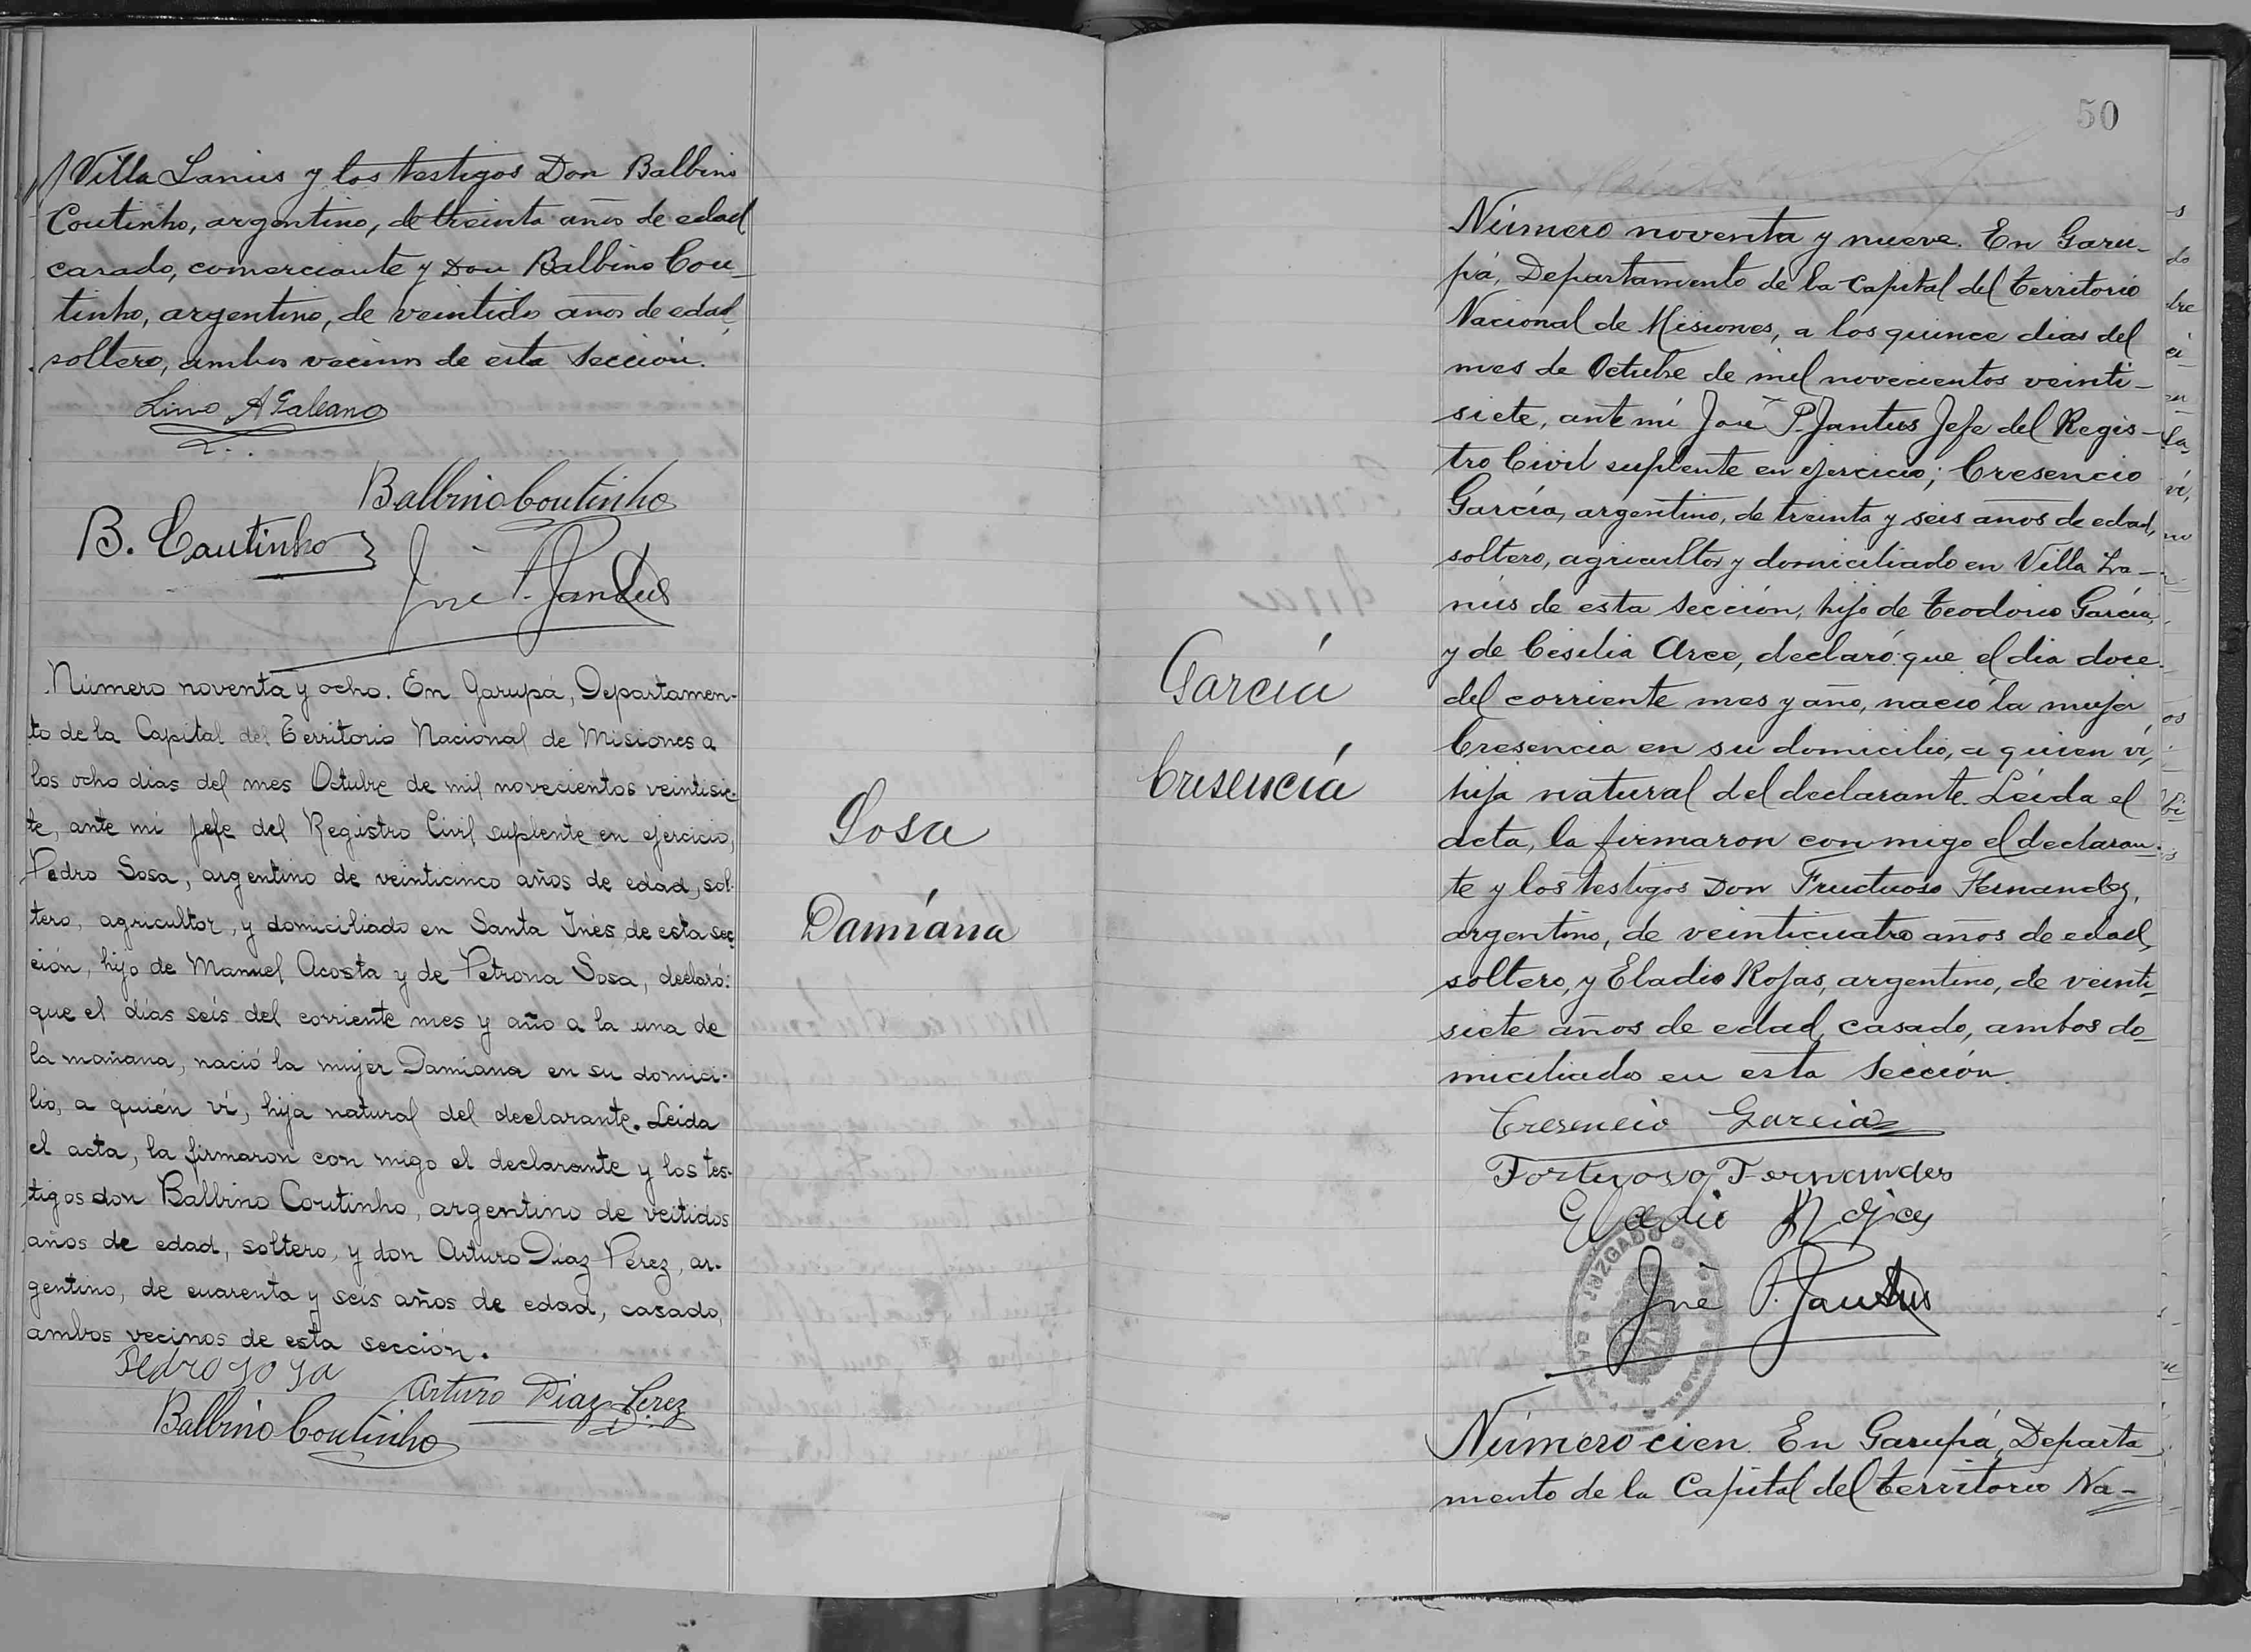 Villa Lanus y los testigos Don Balbino
Coutinho, argentino, de treinta años de edad
casado, comerciante y Don Balbino Cou-
tinho, argentino, de veintido años de edad
soltero, ambos vecinos de esta sección.
Lino A Galeano
Balbino Coutinho
B. Coutinho
José P. Jantus
Número noventa y ocho. En Garupá, Departamen-
to de la Capital del Territorio Nacional de Misiones a
los ocho días del mes Octubre de mil novecientos veintisie-
te, ante mi Jefe del Registro Civil suplente en ejercicio,
Pedro Sosa, argentino de veinticinco años de edad, sol-
tero, agricultor, y domiciliado en Santa Inés de esta sec
ción, hijo de Manuel Acosta y de Petrona Sosa, declaró:
que el días seís del corriente mes y año a la una de
la mañana, nació la mujer Damiana en su domici-
lio, a quién ví, hija natural del declarante. Leida
el acta, la firmaron con migo el declarante y los tes-
tigos don Balbino Coutinho, argentino de veitidos
años de edad, soltero, y don Arturo Díaz Pérez, ar-
gentino, de cuarenta y seís años de edad, casado,
ambos vecinos de esta sección.
Pedro Sosa
Arturo Diaz Perez
Balbino Coutinho
Sosa
Damiana
50
García
Cresencia
Número noventa y nueve. En Garu-
pá, Departamento de la Capital del Territorio
Nacional de Misiones, a los quince dias del
mes de Octubre de mil novecientos veinti-
siete, ante mi José P. Jantus Jefe del Regis-
tro Civil suplente en ejercicio; Cresencio
García, argentino, de treinta y seis años de edad,
soltero, agricultor y domiciliado en Villa La-
nús de esta sección, hijo de Teodorio García,
y de Cesilia Arce, declaró: que el dia doce
del corriente mes y año, nació la mujer
Cresencia en su domicilio, a quien ví,
hija natural del declarante. Leída el
acta, la firmaron con migo el declaran-
te y los testigos Don Fructuoso Fernandez,
argentino, de veinticuatro años de edad,
soltero, y Eladio Rojas, argentino, de veinti-
siete años de edad, casado, ambos do-
miciliados en esta sección.
Cresencio Garcia
Fortuoso Fernandes
Eladio Rojas
JUZGADO DE
José P. Jantus
Número cien. En Garupá, Departa
mento de la Capital del Territorio Na-